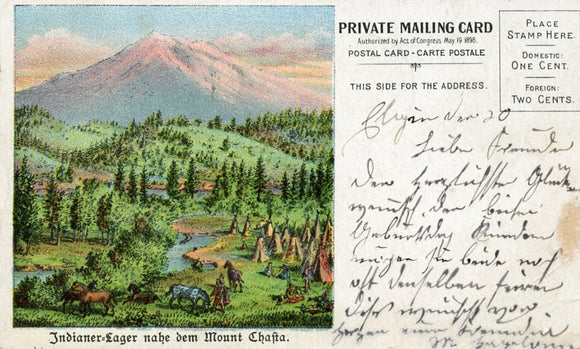 PRIVATE MAILING CARD
Authorized by Act of Congress May 19 1898.
POSTAL CARD - CARTE POSTALE
THIS SIDE FOR THE ADDRESS.
PLACE
STAMP HERE.
DOMESTIC:
ONE CENT.
FOREIGN:
TWO CENTS.
Elgin der 20
Liebe Freunde
Den herzlichsten Glück
wunsch, der
Geburtstag
mögen Sie beide noch
oft denselben feiern
Dies wünscht von
Herzen eure Freundin
Indianer-Lager nahe dem Mount Chasta.